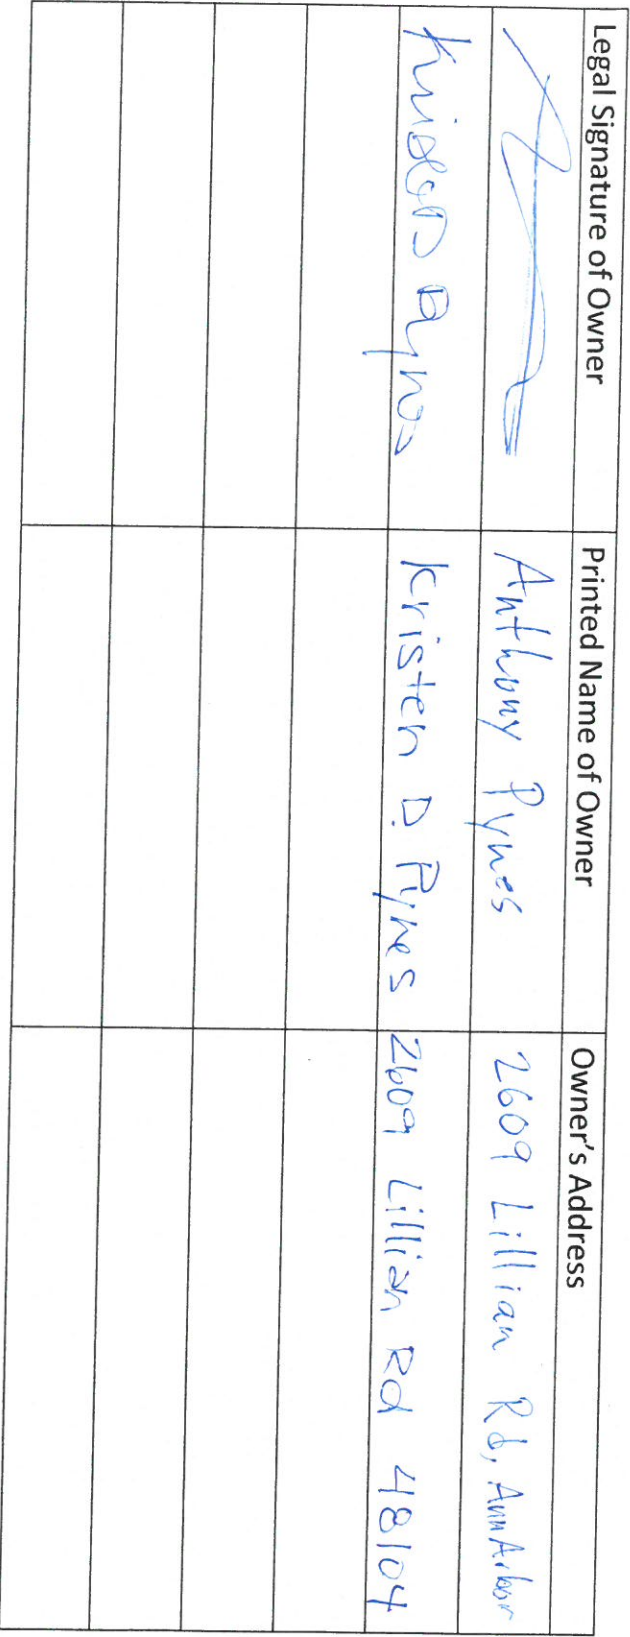 Legal Signature of Owner Printed Name of Owner Owner's Address
Anthony Pynes 2609 Lillian Rd, Ann Arbor
Kristen D Pynes Kristen D. Pynes 2609 Lillian Rd 48104